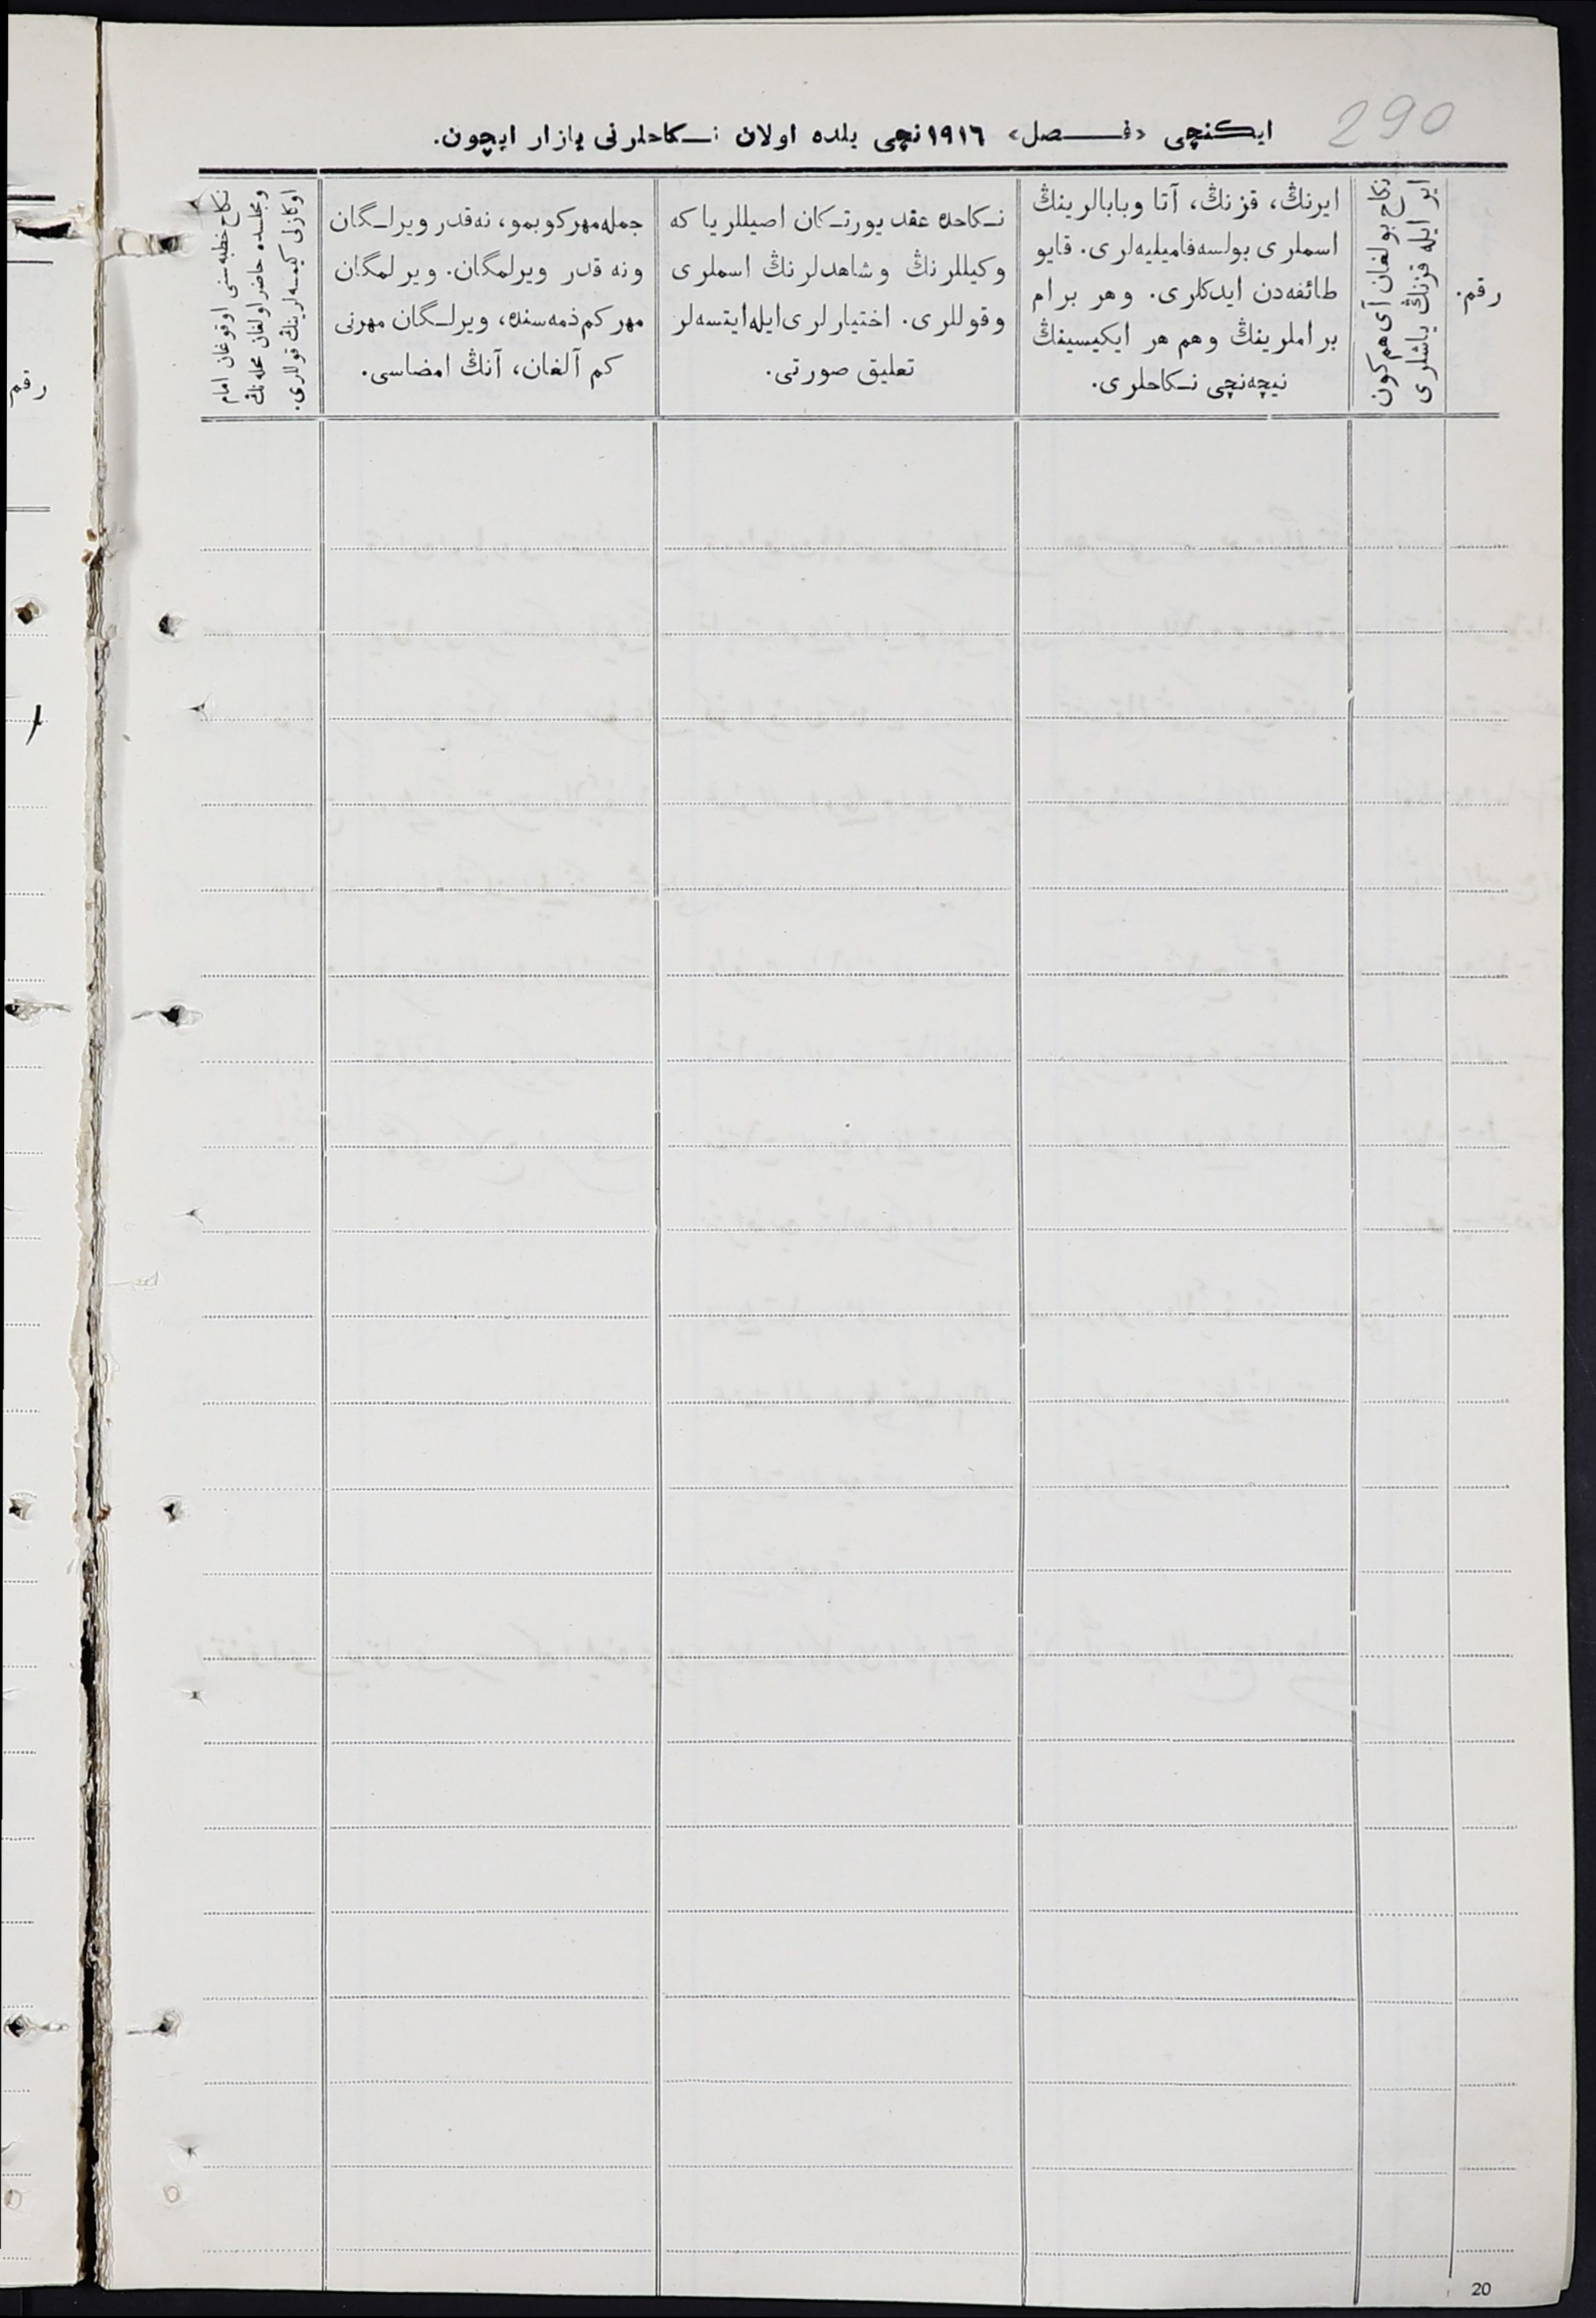 290
ایکنچی «فصل» ١٩١٦نچی یلده اولان نکاحلرنی یازار ایچون.
رقم.
نکاح بولغان آی هم کون
ایر ایله قزنڭ یاشلری
ایرنڭ، قزنڭ، آتا وبابالرینڭ
اسملری بولسه فامیلیه‌لری. قایو
طائفه‌دن ایدکلری. وهر برام
براملرینڭ وهم هر ایکیسینڭ
نیچه‌نچی نکاحلری.
نکاحده عقد یورتکان اصیللر یا که
وکیللرنڭ وشاهدلرنڭ اسملری
وقوللری. اختیارلری ایله ایتسه‌لر
تعلیق صورتی.
جمله مهر کو بمو، نه قدر ویرلگان
ونه قدر ویرلمگان. ویرلمگان
مهر کم ذمه سنده، ویرلگان مهرنی
کم آلغان، آنڭ امضاسی.
نکاح خطبه سنی اوقوغان امام
ومجلسده حاضر اولغان محله نڭ
اوکازلی کیمسه لرینڭ قوللری.
رقم
20